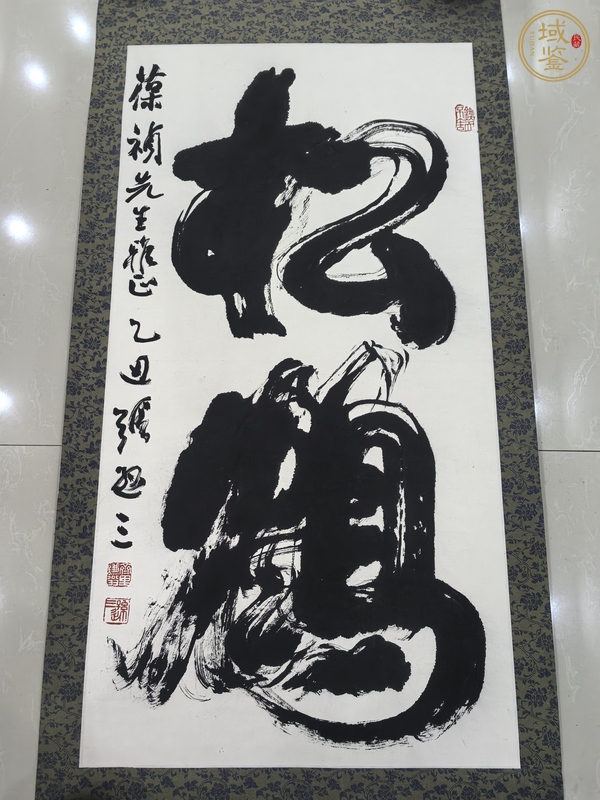 松鹤
葆祯先生雅正 乙丑 张处三
域鉴